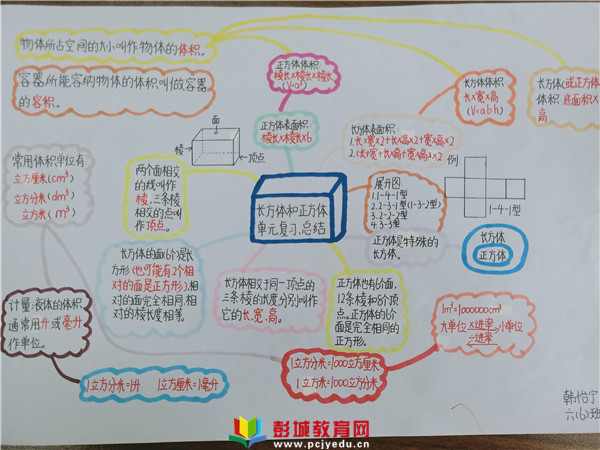 物体所占空间的大小叫作物体的体积。
容器所能容纳物体的体积叫做容器
的容积。
正方体体积:
棱长×棱长×棱长
(V=a³)
长方体体积:
长×宽×高
(V=abh)
长方体(或正方体
体积:底面积×
高
正方体表面积:
棱长×棱长×6
长方体表面积:
1.长×宽×2+长×高×2+宽×高×2
面
棱
顶点
常用体积单位有
立方厘米(cm³)
立方分米(dm³)
立方米(m³)
两个面相交
的线叫作
棱,三条棱
相交的点叫
作顶点。
长方体和正方体
单元复习.总结
展开图
1.1-4-1型
2.2-3-1型(1-3-2型)
3.2-2-2型
4.3-3型
例
1-4-1型
正方体是特殊的
长方体。
长方体
正方体
长方体的面(6)是长
方形(也可能有2个相
对的面是正方形),相
对的面完全相同,相
对的棱长度相等。
长方体相交于同一顶点的
三条棱的长度分别叫作
它的长.宽.高。
正方体也有6个面,
12条棱和8个顶
点。正方体的6个
面是完全相同的
正方形。
1m³=1000000cm³
大单位×进率小单位
÷进率
计量液体的体积,
通常用升或毫升
作单位。
1立方分米=1升 1立方厘米=1毫升
1立方分米=1000立方厘米
1立方米=1000立方分米
韩怡宁
六(6)班
彭城教育网
www.pcjyedu.cn